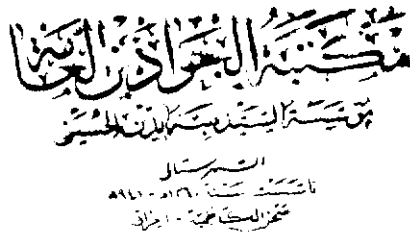 مكتبة الجوادين العامة
مؤسسة السيد هبة الدين الحسيني
الشهرستاني
تأسست سنة ١٣٦٠هـ - ١٩٤١م
صحن الكاظمية - العراق